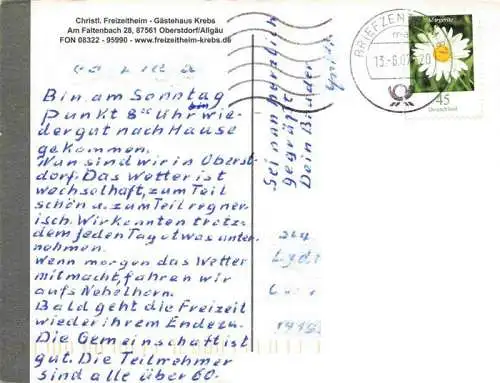 Christl. Freizeitheim - Gästehaus Krebs
Am Faltenbach 28, 87561 Oberstdorf/Allgäu
FON 08322 - 95990 - www.freizeitheim-krebs.de
Bin am Sonntag
Punkt 8⁰⁰ Uhr bin wie-
der gut nach Hause
gekommen.
Nun sind wir in Oberst-
dorf. Das Wetter ist
wechselhaft, zum Teil
schön u. zum Teil regner-
isch. Wir konnten trotz-
dem jeden Tag etwas unter-
nehmen.
Wenn morgen das Wetter
mitmacht, fahren wir
aufs Nebelhorn.
Bald geht die Freizeit
wieder ihrem Ende zu.
Die Gemeinschaft ist
gut. Die Teilnehmer
sind alle über 60.
Sei nun herzlich
gegrüßt
Dein Bruder
BRIEFZEN
45
Deutschland